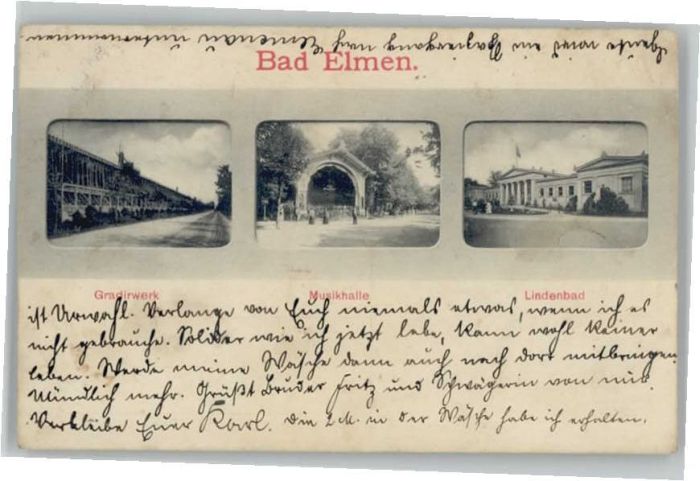 Heute wird ein Spaziergang nach Ilmenau unternommen
Bad Elmen.
Gradirwerk
Musikhalle
Lindenbad
ist Urwahl. Verlange von Euch niemals etwas, wenn ich es
nicht gebrauche. Solider wie ich jetzt lebe, kann wohl keiner
leben. Werde meine Wäsche dann auch nach dort mitbringen
Mündlich mehr. Grüßt Bruder Fritz und Schwägerin von mir.
Verbleibe Euer Karl. Die 2 M. in der Wäsche habe ich erhalten.